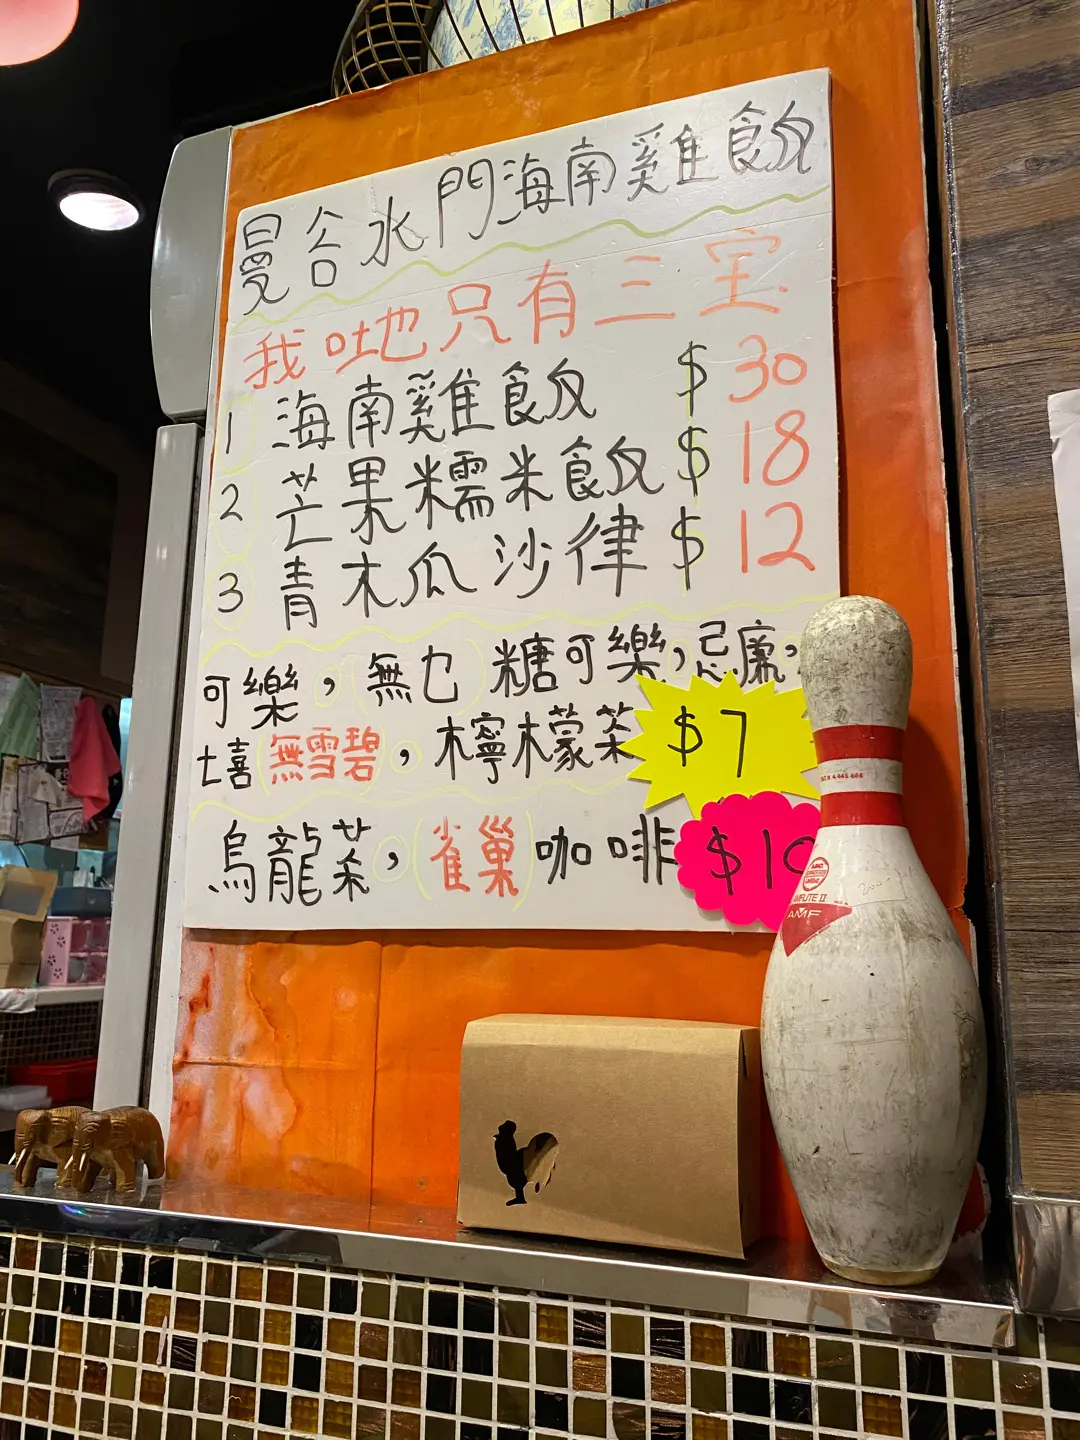 曼谷水門海南雞飯
我吔只有三宝
1 海南雞飯 $30
2 芒果糯米飯 $18
3 青木瓜沙律 $12
可樂，(無乜)糖可樂，忌廉，
(無雪碧)，檸檬茶 $7
烏龍茶，(雀巢)咖啡 $10
AMFLITE II
AMF